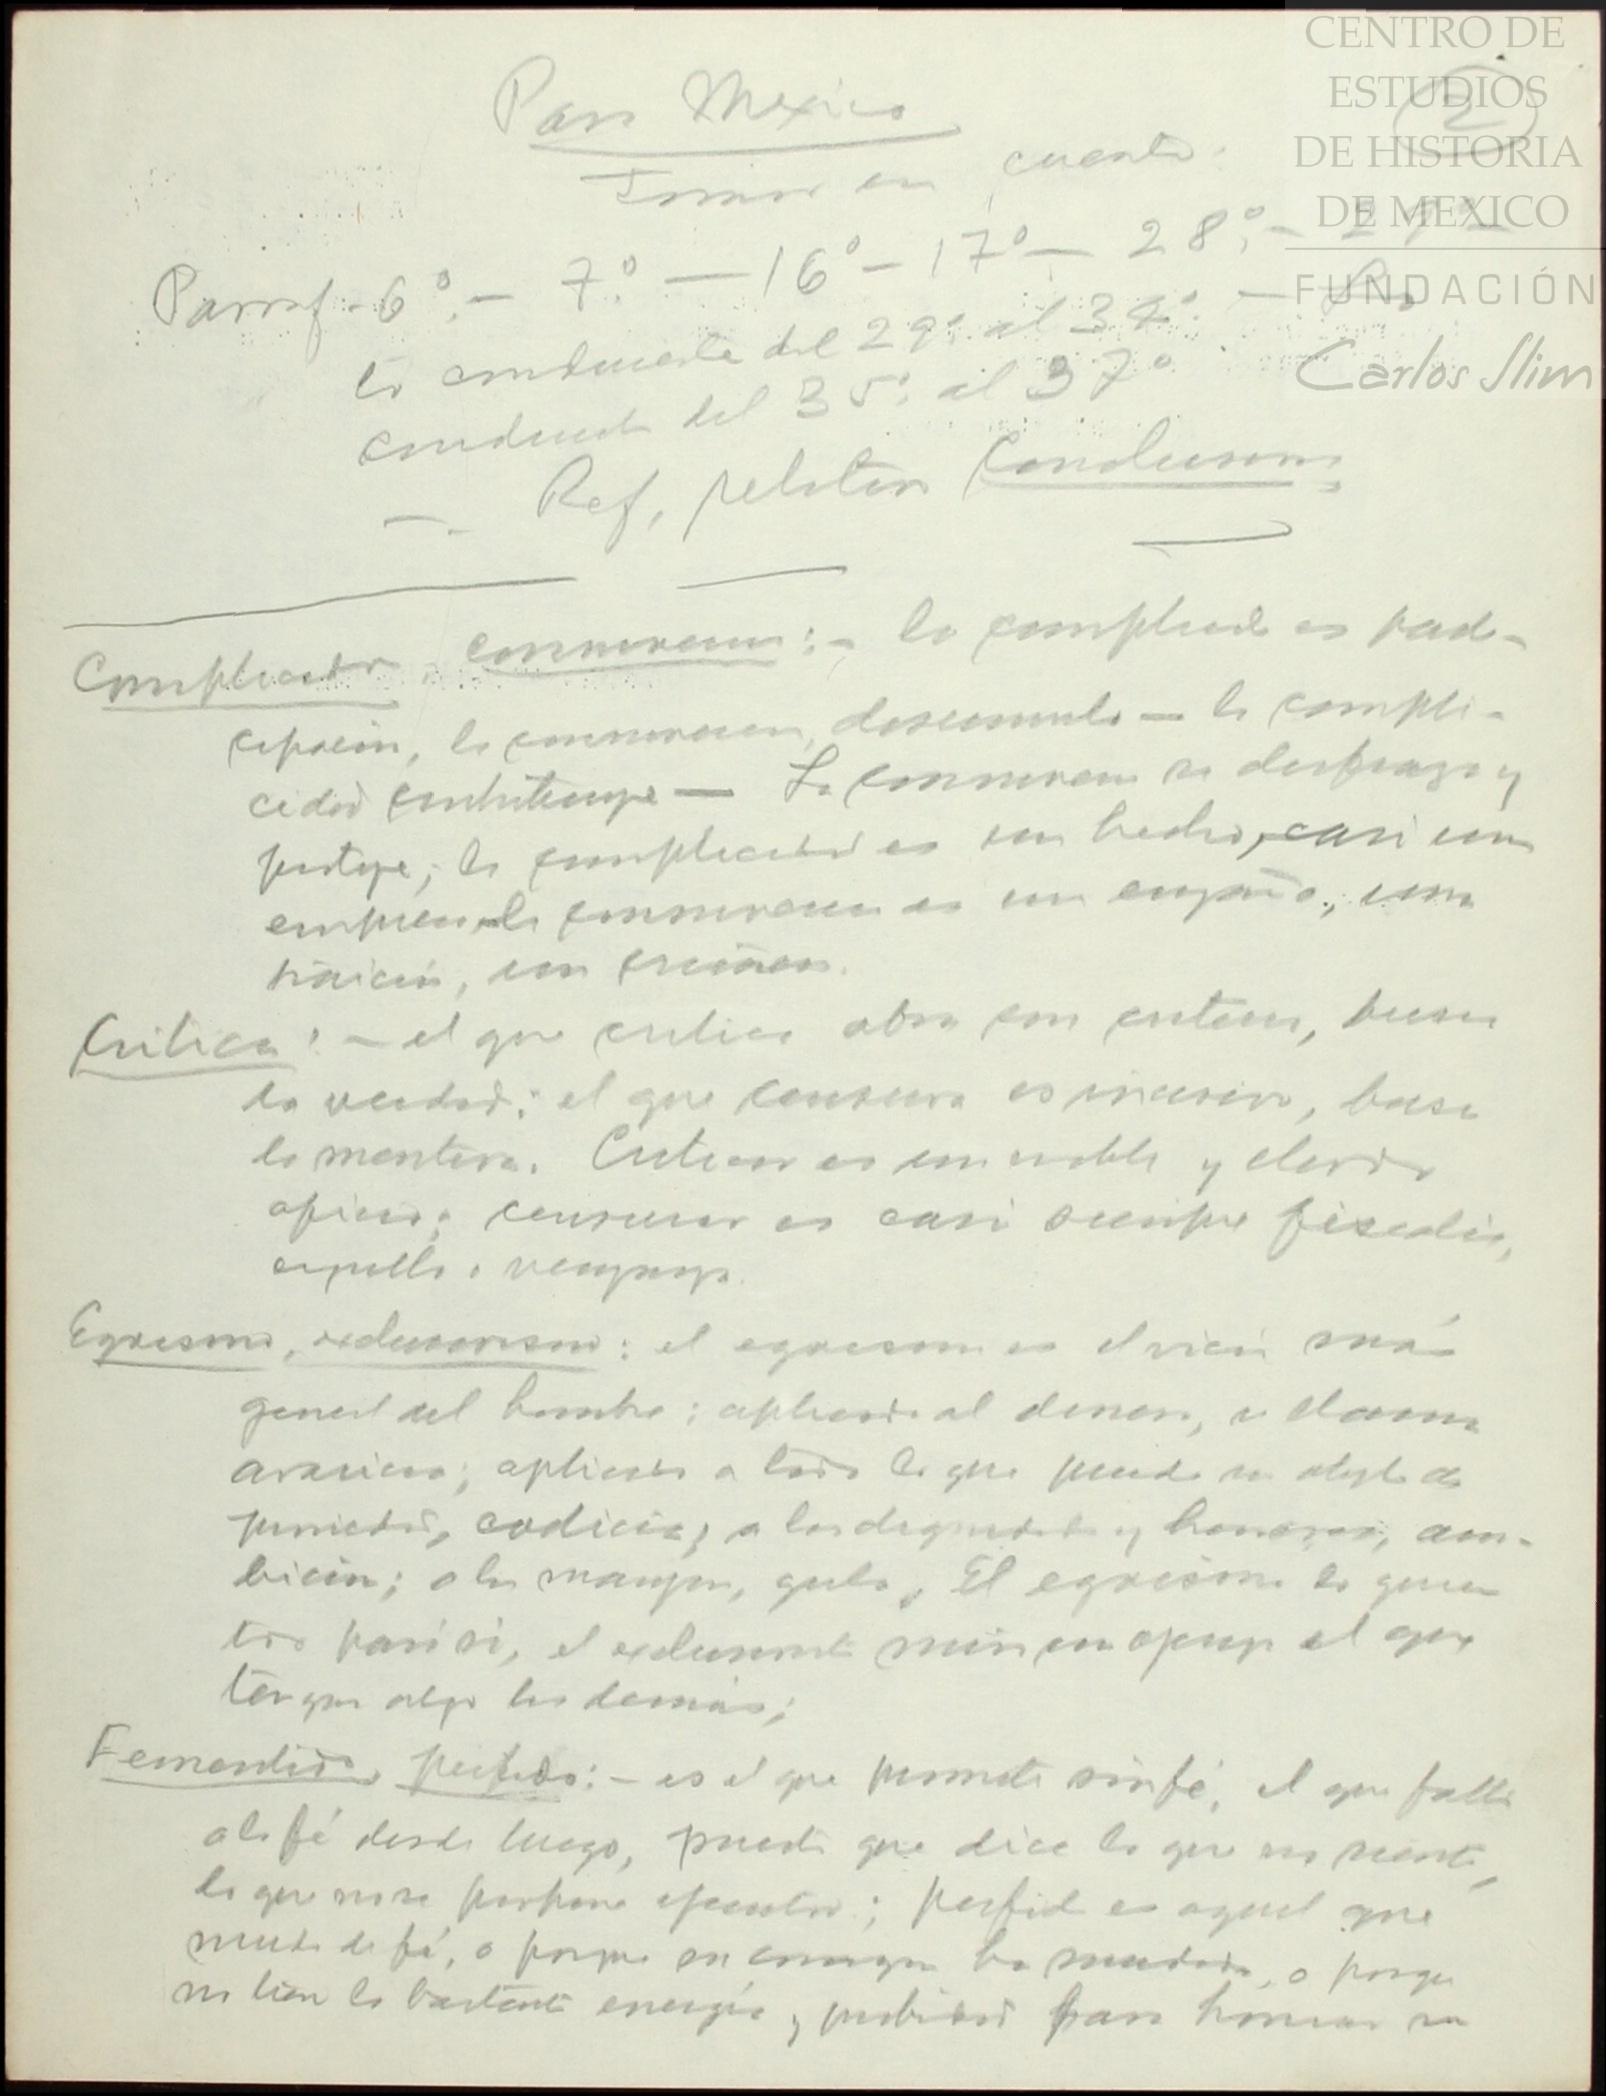 CENTRO DE
ESTUDIOS
DE HISTORIA
DE MEXICO
FUNDACIÓN
Carlos Slim
2
Para Mexico
Tomar en cuenta:
Parraf. 6º.- 7º. — 16º - 17º — 28º. -
lo conducente del 29º. al 34º. —
conducente del 35º. al 37º
—. Ref, relativa Conclusiones
Complicidad, connivencia:- la complicidad es parti-
cipación, la connivencia, disimulo — la compli-
cidad contribuye — La connivencia se disfraza y
protege; la complicidad es un hecho, casi una
empresa, la connivencia es un engaño, una
traición, una
Critica: - el que critica obra con criterio, busca
la verdad; el que censura es incisivo, busca
la mentira. Criticar es un noble y elevado
oficio; censurar es casi siempre fiscalía,
orgullo o venganza.
Egoismo, exclusivismo: el egoismo es el vicio más
general del hombre; aplicado al dinero, se llama
avaricia; aplicado a todo lo que puede ser objeto de
posesión, codicia; a las dignidades y honores, am-
bición; a los manjares, gula. El egoismo lo quiere
todo para si, el exclusivista mira con enojo el que
tengan algo los demás;
Fementido, perfido:- es el que promete sin fé, el que falta
a la fé desde luego, puesto que dice lo que no siente,
lo que no se propone ejecutar; perfido es aquel que
muda de fé, o porque su corazon ha mudado, o porque
no tiene la bastante energía y probidad para honrar su